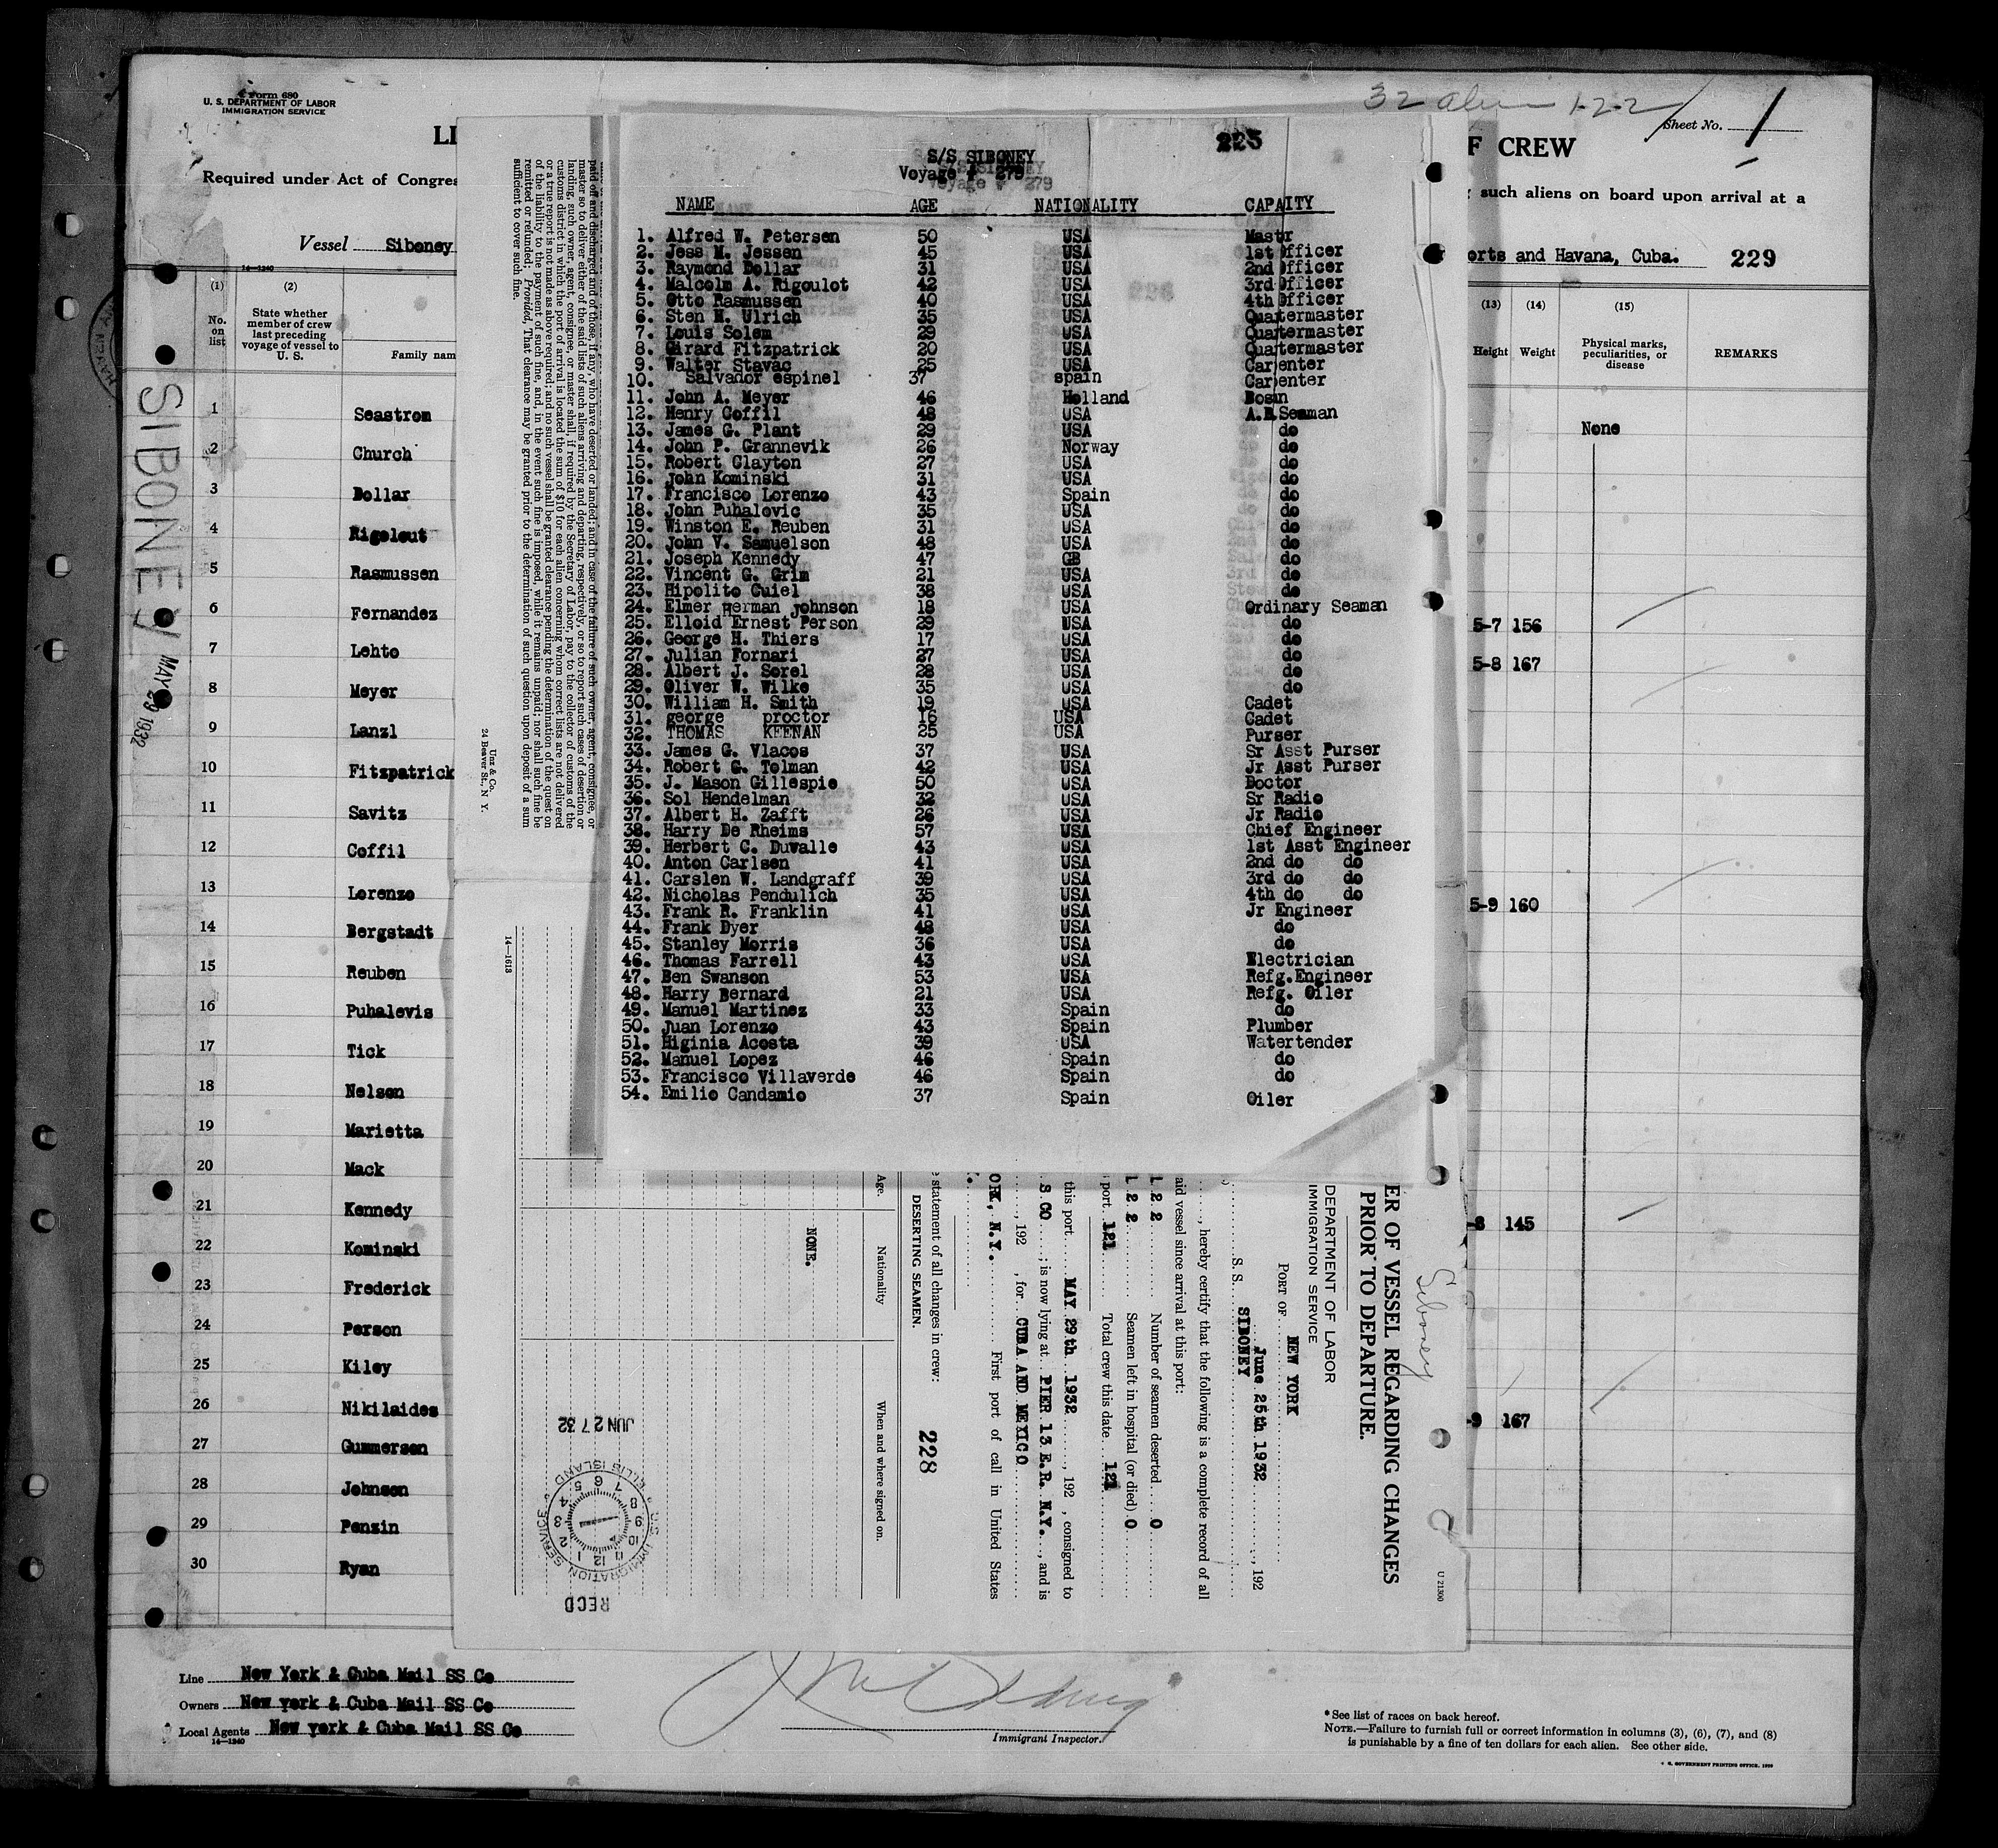 Form 680
U. S. DEPARTMENT OF LABOR
IMMIGRATION SERVICE
32 alien 122
Sheet No. 1
LI
F CREW
Required under Act of Congres
such aliens on board upon arrival at a
Vessel Siboney
orts and Havana, Cuba. 229
14—1240
(1) (2)
No. on list
State whether member of crew last preceding voyage of vessel to U. S.
Family nam
(13) (14) (15)
Height Weight
Physical marks, peculiarities, or disease
REMARKS
None
SIBONEY MAY 29 1932
1 Seastrom
2 Church
3 Dollar
4 Rigolout
5 Rasmussen
6 Fernandez 5-7 156
7 Lehto 5-8 167
8 Meyer
9 Lanzl
10 Fitzpatrick
11 Savitz
12 Coffil
13 Lorenzo 5-9 160
14 Bergstadt
15 Reuben
16 Puhalovis
17 Tick
18 Nelson
19 Marietta
20 Mack
21 Kennedy -8 145
22 Kominski
23 Frederick
24 Person
25 Kiley
26 Nikilaides -9 167
27 Gummersen
28 Johnson
29 Penzin
30 Ryan
Line New York & Cuba Mail SS Co
Owners New york & Cuba Mail SS Co
Local Agents New york & Cuba Mail SS Co
14—1240
Immigrant Inspector.
* See list of races on back hereof.
NOTE.—Failure to furnish full or correct information in columns (3), (6), (7), and (8)
is punishable by a fine of ten dollars for each alien. See other side.
U. S. GOVERNMENT PRINTING OFFICE. 1929
225
S/S SIBONEY
Voyage # 279
NAME AGE NATIONALITY CAPAITY
1. Alfred W. Petersen 50 USA Mastr
2. Jess M. Jessen 45 USA 1st Officer
3. Raymond Dollar 31 USA 2nd Officer
4. Malcolm A. Rigoulot 42 USA 3rd Officer
5. Otto Rasmussen 40 USA 4th Officer
6. Sten M. Ulrich 35 USA Quatermaster
7. Louis Solem 29 USA Quatermaster
8. Girard Fitzpatrick 20 USA Quatermaster
9. Walter Stavac 25 USA Carpenter
10. Salvador espinel 37 spain Carpenter
11. John A. Meyer 46 Holland Bosin
12. Henry Coffil 48 USA A.B.Seaman
13. James G. Plant 29 USA do
14. John P. Grannevik 26 Norway do
15. Robert Clayton 27 USA do
16. John Kominski 31 USA do
17. Francisco Lorenzo 43 Spain do
18. John Puhalovic 35 USA do
19. Winston E. Reuben 31 USA do
20. John V. Samuelson 48 USA do
21. Joseph Kennedy 47 GB do
22. Vincent G. Grim 21 USA do
23. Hipolito Cuiel 38 USA do
24. Elmer Herman Johnson 18 USA Ordinary Seaman
25. Elloid Ernest Person 29 USA do
26. George H. Thiers 17 USA do
27. Julian Fornari 27 USA do
28. Albert J. Sorel 28 USA do
29. Oliver W. Wilke 35 USA do
30. William H. Smith 19 USA Cadet
31. george proctor 16 USA Cadet
32. THOMAS KEENAN 25 USA Purser
33. James G. Vlacos 37 USA Sr Asst Purser
34. Robert G. Tolman 42 USA Jr Asst Purser
35. J. Mason Gillespie 50 USA Doctor
36. Sol Hendelman 32 USA Sr Radio
37. Albert H. Zafft 26 USA Jr Radio
38. Harry De Rheims 57 USA Chief Engineer
39. Herbert C. Duvalle 43 USA 1st Asst Engineer
40. Anton Carlsen 41 USA 2nd do do
41. Carslen W. Landgraff 39 USA 3rd do do
42. Nicholas Pendulich 35 USA 4th do do
43. Frank R. Franklin 41 USA Jr Engineer
44. Frank Dyer 48 USA do
45. Stanley Morris 36 USA do
46. Thomas Farrell 43 USA Electrician
47. Ben Swanson 53 USA Refg.Engineer
48. Harry Bernard 21 USA Refg. Oiler
49. Manuel Martinez 33 Spain do
50. Juan Lorenzo 43 Spain Plumber
51. Higinia Acosta 39 USA Watertender
52. Manuel Lopez 46 Spain do
53. Francisco Villaverde 46 Spain do
54. Emilio Candamio 37 Spain Oiler
Siboney
U 21300
ER OF VESSEL REGARDING CHANGES
PRIOR TO DEPARTURE.
DEPARTMENT OF LABOR
IMMIGRATION SERVICE
PORT OF NEW YORK
June 25th 1932, 192
S. S. SIBONEY
, hereby certify that the following is a complete record of all
aid vessel since arrival at this port:
1 2 2 Number of seamen deserted 0
1 2 2 Seamen left in hospital (or died) 0
port 121 Total crew this date 121
this port MAY 29th 1932, 192 , consigned to
S CO ; is now lying at PIER 13 E.R. N.Y., and is
, 192 , for CUBA AND MEXICO
ORK, N.Y. First port of call in United States
statement of all changes in crew: 228
DESERTING SEAMEN.
Age. Nationality When and where signed on.
NONE.
JUN 27 32
U.S. IMMIGRATION SERVICE ELLIS ISLAND
RECD
paid off and discharged and of those, if any, who have deserted or landed; and in case of the failure of such owner, agent, consignee, or
master so to deliver either of the said lists of such aliens arriving and departing, respectively, or so to report such cases of desertion or
landing, such owner, agent, consignee, or master shall, if required by the Secretary of Labor, pay to the collector of customs of the
customs district in which the port of arrival is located the sum of $10 for each alien concerning whom correct lists are not delivered
or a true report is not made as above required; and no such vessel shall be granted clearance pending the determination of the question
of the liability to the payment of such fine, and, in the event such fine is imposed, while it remains unpaid; nor shall such fine be
remitted or refunded: Provided, That clearance may be granted prior to the determination of such question upon deposit of a sum
sufficient to cover such fine.
Unz & Co.
24 Beaver St., N. Y.
14—1613